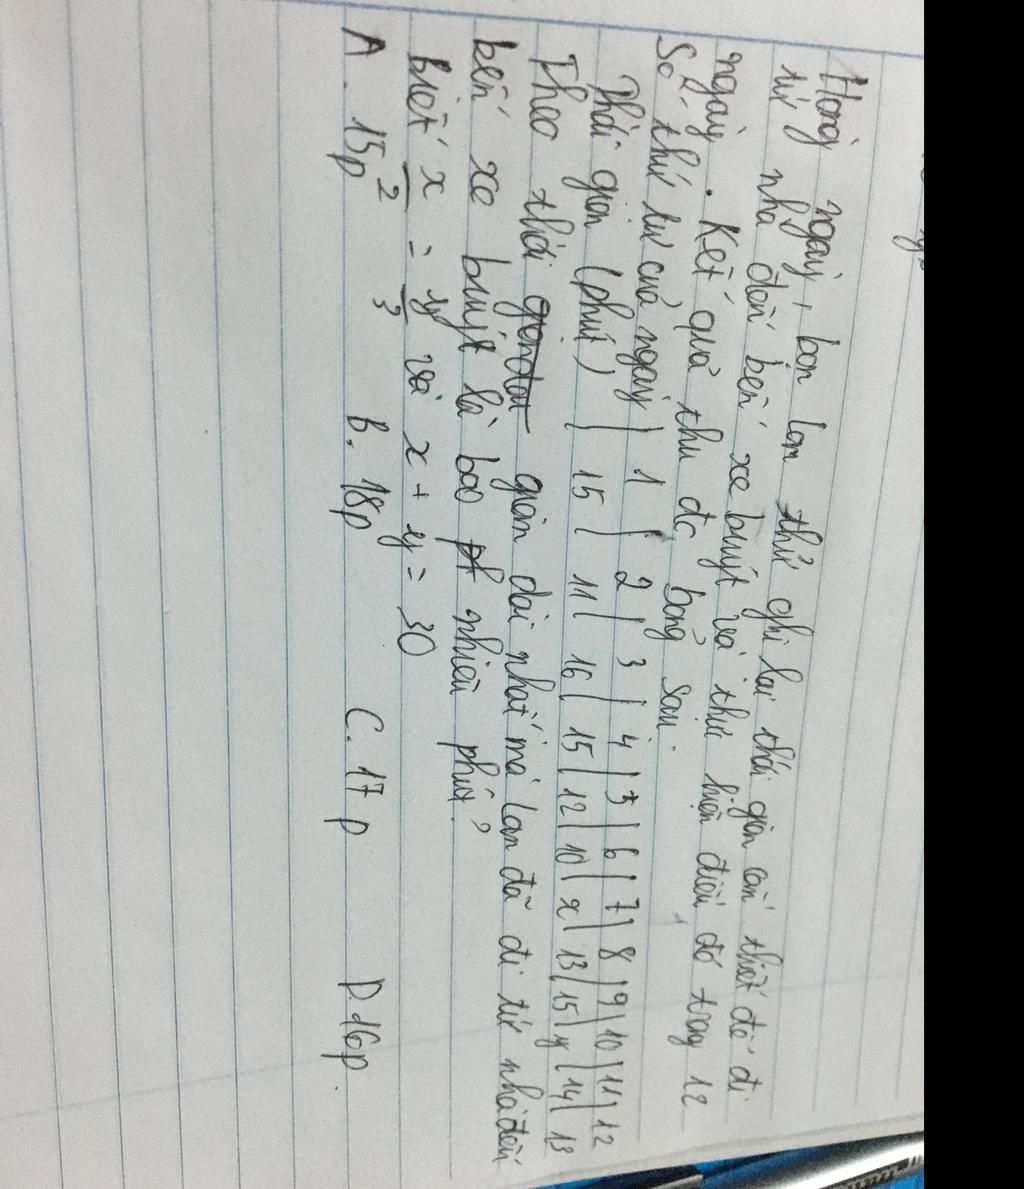 Hằng ngày, bạn Lan thử ghi lại thời gian cần thiết để đi
từ nhà đến bến xe buýt và thực hiện điều đó trong 12
ngày. Kết quả thu đc bảng sau.
Số thứ tự của ngày | 1 | 2 | 3 | 4 | 5 | 6 | 7 | 8 | 9 | 10 | 11 | 12
Thời gian (phút) | 15 | 11 | 16 | 15 | 12 | 10 | x | 13 | 15 | y | 14 | 13
Theo thời gian dài nhất mà Lan đã đi từ nhà đến
bến xe buýt là bao nhiêu phút?
Biết x/2 = y/3 và x + y = 30
A. 15p B. 18p C. 17p D. 16p.